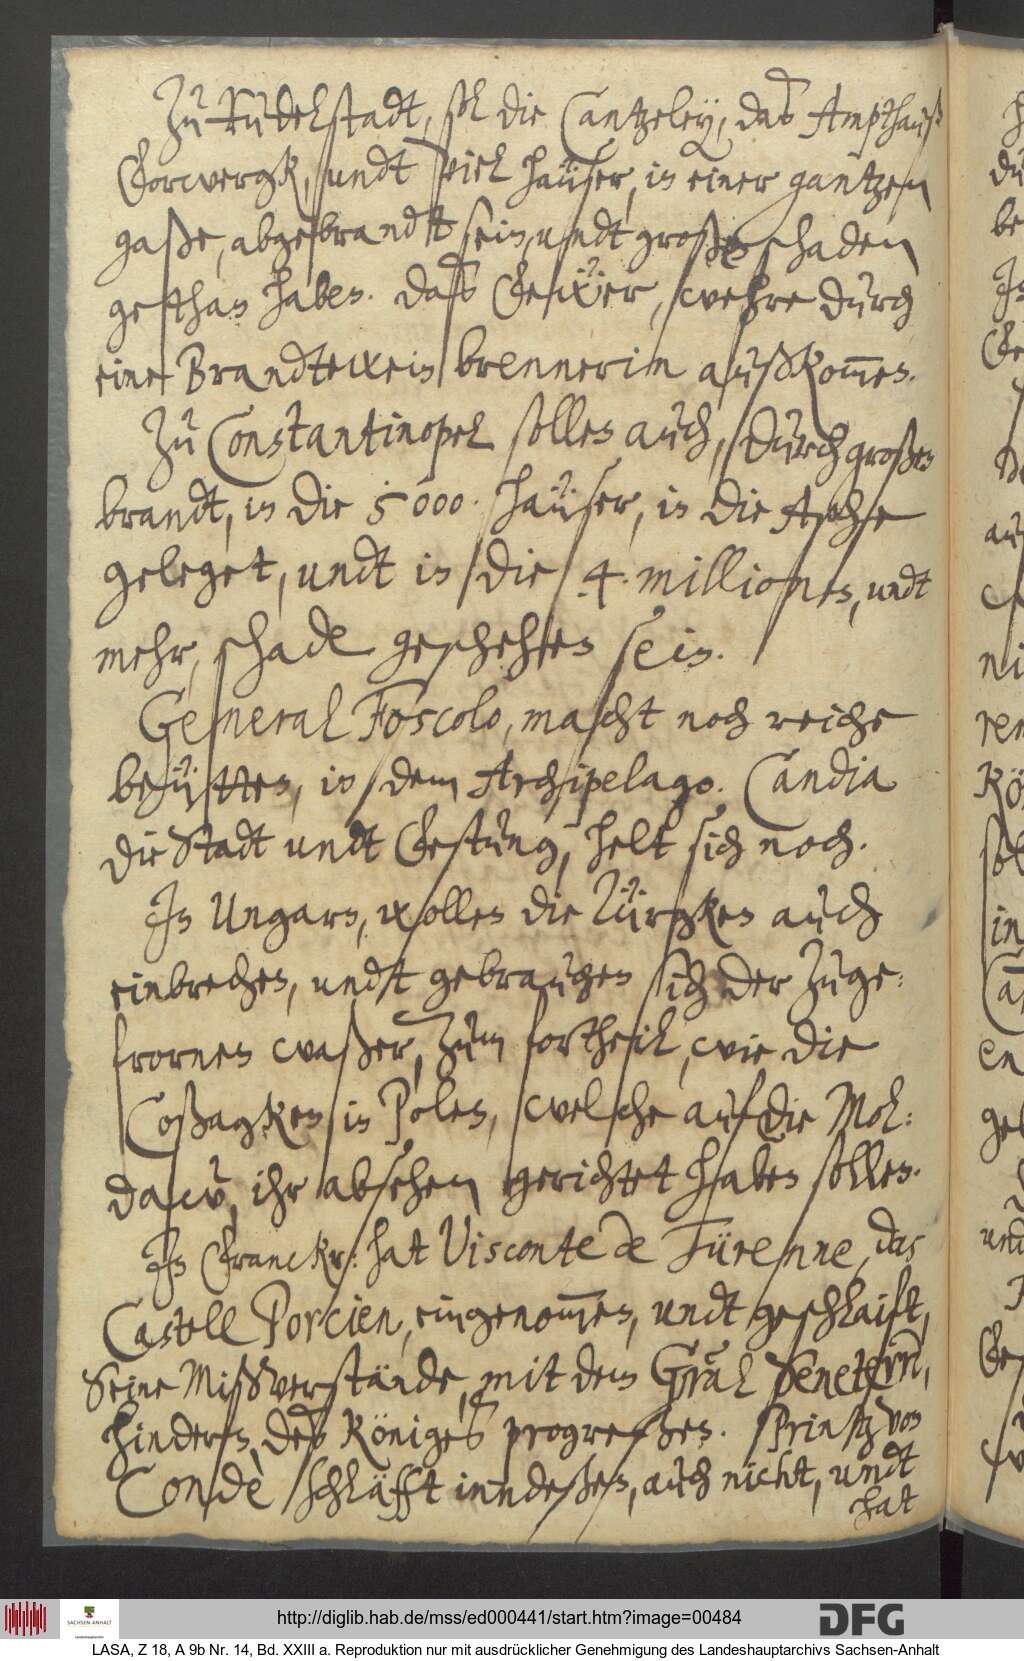 Zu Rudelstadt, sol die Cantzeley, das Ampthauß
Vorwergk, undt viel häuser, in einer gantzen
gaße, abgebrandtt sein, undt großen schaden
gethan haben. daß Gewer, wehre durch
eine Brandtewein brennerin außkom̅en.
Zu Constantinopel sollen auch, durch großen
brandt, in die 5000. häuser, in die Asche
geleget, undt in die 4. millionen, undt
mehr, schade geschehen sein.
General Foscolo, macht noch reiche
beütten, in dem Archipelago. Candia
die Stadt undt Vestung, helt sich noch.
In Ungarn, wollen die Türgken auch
einbrechen, undt gebrauchen sich der zuge:
frornen waßer, zum fortheil, wie die
Coßagken in Polen, welche auf die Mol:
daw, ihr absehen gerichtet haben sollen.
In Franckr: hat Visconte de Türenne, das
Castell Porcien, eingenom̅en, undt geschlaift,
Seine Mißverstände, mit dem Gräl Seneterre,
hindern, deß Königes progreßen. Printz von
Condè schläfft inndeßen, auch nicht, undt
hat
http://diglib.hab.de/mss/ed000441/start.htm?image=00484
SACHSEN-ANHALT
DFG
LASA, Z 18, A 9b Nr. 14, Bd. XXIII a. Reproduktion nur mit ausdrücklicher Genehmigung des Landeshauptarchivs Sachsen-Anhalt